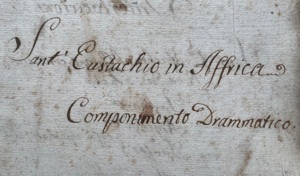 Sant' Eustachio in Affrica
Componimento Drammatico.